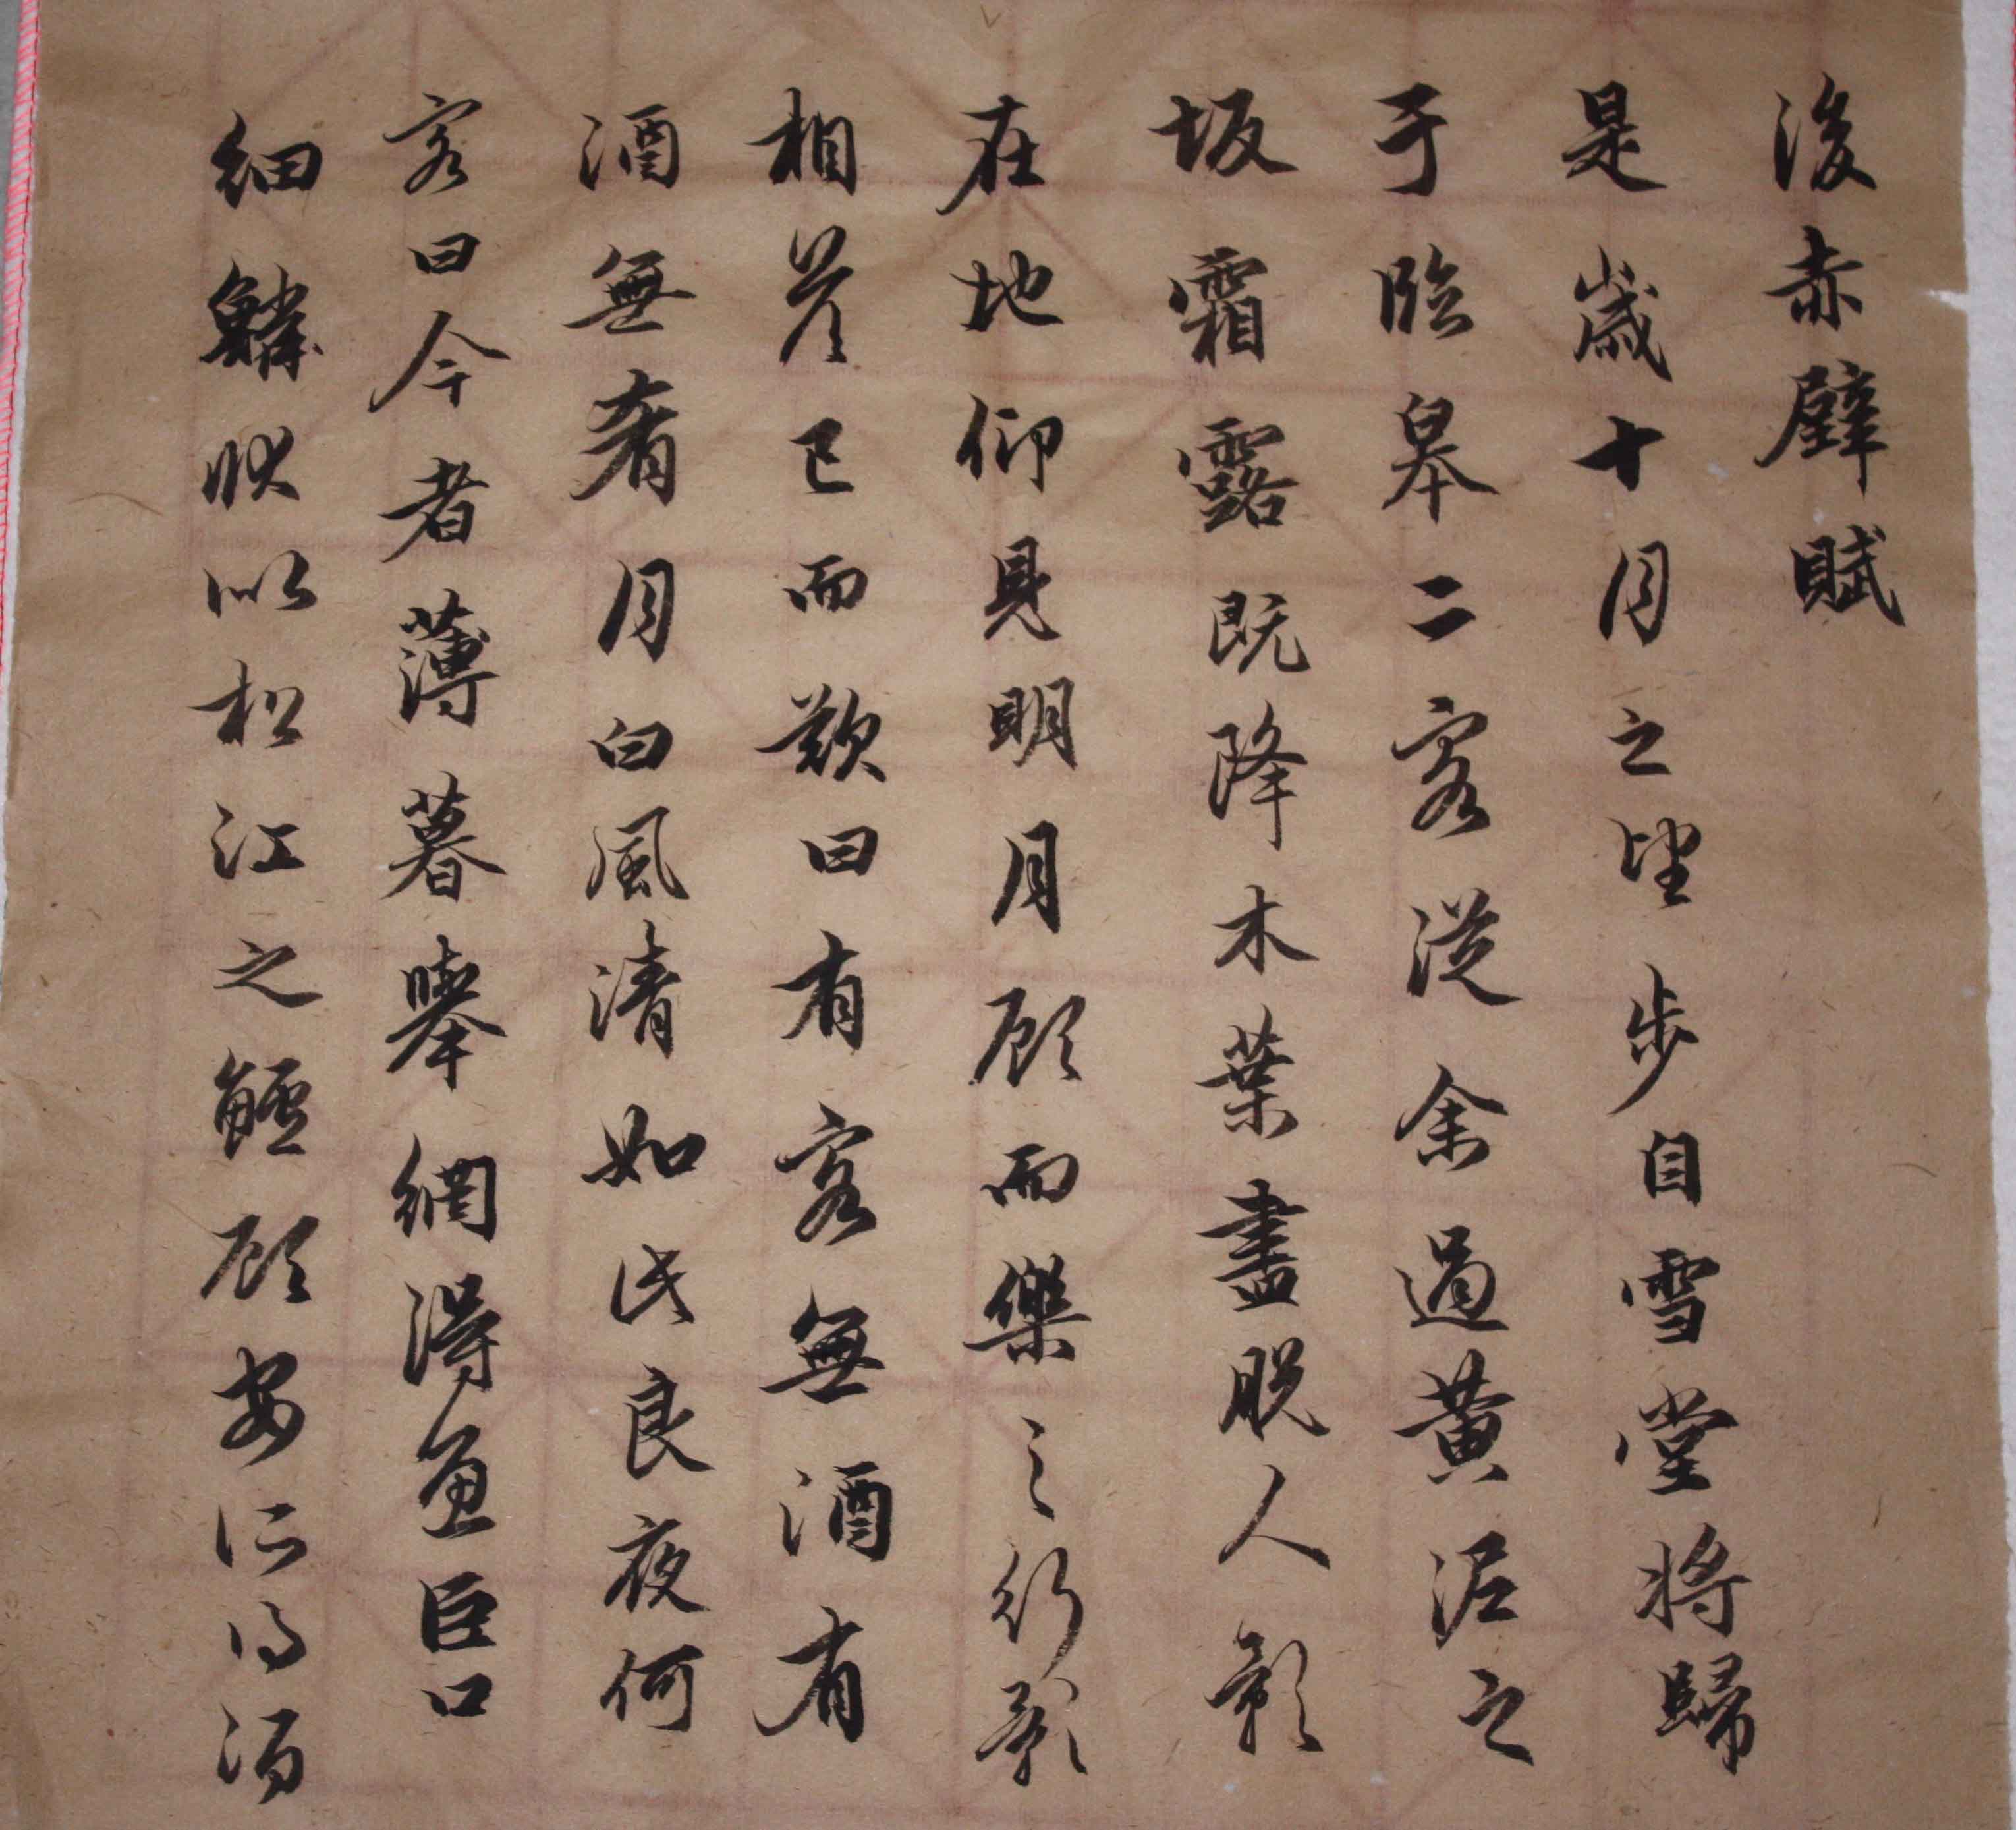 後赤壁賦
是歲十月之望步自雪堂將歸
于臨皋二客從余過黃泥之
坂霜露既降木葉盡脫人影
在地仰見明月顧而樂之行歌
相答已而歎曰有客無酒有
酒無肴月白風清如此良夜何
客曰今者薄暮舉網得魚巨口
細鱗狀以松江之鱸顧安所得酒